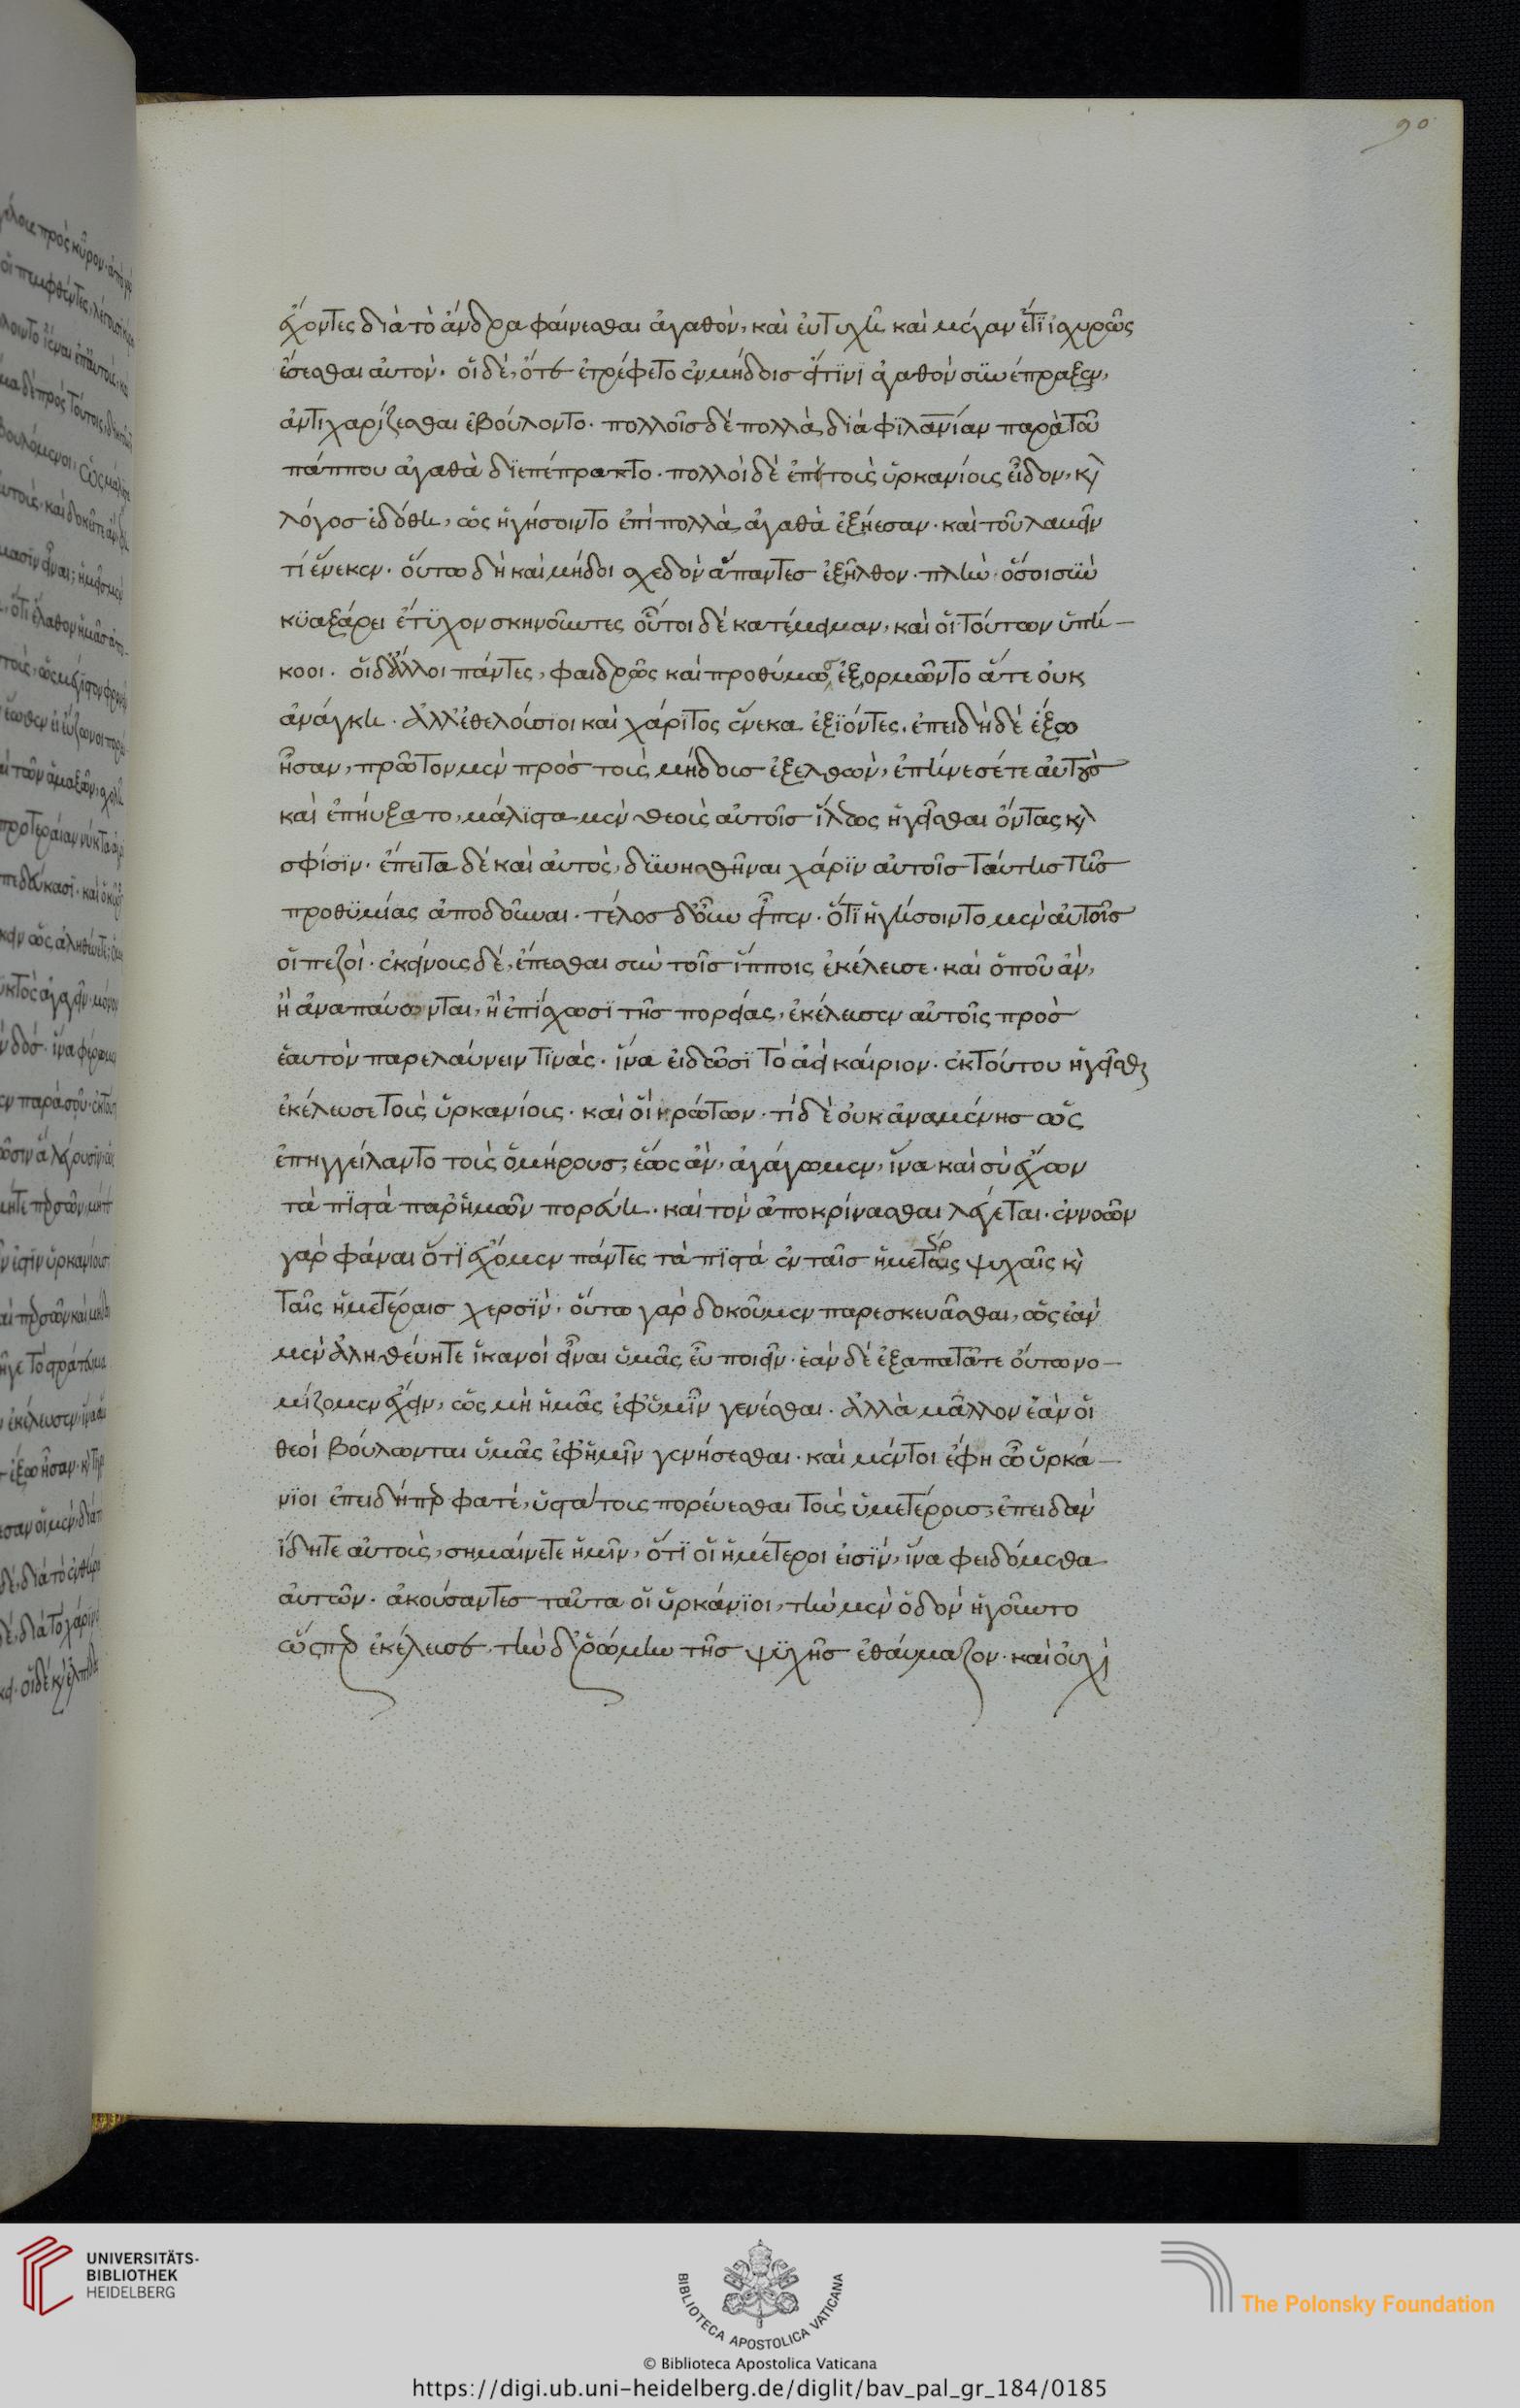 90
ἔχοντες διὰ τὸ ἄνδρα φαίνεσθαι ἀγαθὸν, καὶ ἐυτυχῆ καὶ μέγαν ἔτϊ ἰσχυρῶς
ἔσεσθαι αὐτὸν. οἵ δὲ, ὅτε ἐτρέφετο ἐν μήδοις εἴ τϊνϊ ἀγαθὸν συνέπραξεν,
ἀντιχαρίζεσθαι ἐβούλοντο. πολλοῖς δὲ πολλὰ διὰ φϊλανίαν παρὰ τοῦ
πάππου ἀγαθὰ δϊεπέπρακτο. πολλοὶ δὲ ἐπὶ τοὺς ὑρκανίους εἶδον, κὶ
λόγος ἐδόθη, ὡς ἡγήσοιντο ἐπὶ πολλὰ ἀγαθὰ ἐξήεσαν. καὶ τοῦ λαβεῖν
τί ἕνεκεν. οὕτω δὴ καὶ μήδοι σχεδὸν ἅπαντες ἐξῆλθον. πλὴν ὅσοι σὺν
κϋαξάρει ἔτϋχον σκηνοῦντες οὗτοι δὲ κατέμειναν, καὶ οἱ τούτων ὑπή-
κοοι. οἱ δἄλλοι πάντες, φαιδρῶς καὶ προθύμως ἐξορμῶντο ἅτε οὐκ
ἀνάγκη. ἀλλἐθελούσϊοι καὶ χάρϊτος ἕνεκα ἐξϊόντες. ἐπειδὴ δὲ ἔξω
ἦσαν, πρῶτον μὲν πρὸς τοὺς μήδους ἐξελθὼν, ἐπήνεσέ τε αὐτοὺς
καὶ ἐπηύξατο, μάλϊστα μὲν θεοὺς αὐτοῖς ἵλεως ἡγεῖσθαι ὄντας κὶ
σφίσϊν. ἔπειτα δὲ καὶ αὐτὸς, δϋνηθῆναι χάρϊν αὐτοῖς ταύτης τῆς
προθϋμίας ἀποδοῦναι. τέλος δοὖν εἶπεν. ὅτϊ ἡγήσοιντο μὲν αὐτοῖς
οἱ πεζοὶ. ἐκείνους δὲ, ἕπεσθαι σὺν τοῖς ἵπποις ἐκέλευσε. καὶ ὅπου ἂν,
ἢ ἀναπαύωνται, ἢ ἐπίσχωσϊ τῆς πορείας, ἐκέλευσεν αὐτοῖς πρὸς
ἑαυτὸν παρελαύνειν τϊνὰς. ἵνα εἰδῶσϊ τὸ ἀεὶ καίριον. ἐκ τούτου ἡγεῖσθαι
ἐκέλευσε τοὺς ὑρκανίους. καὶ οἱ ἠρώτων. τί δὲ οὐκ ἀναμένης ὡς
ἐπηγγείλαντο τοὺς ὁμήρους; ἕως ἂν, ἀγάγωμεν, ἵνα καὶ σὺ ἔχων
τὰ πϊστὰ παρἡμῶν πορεύη. καὶ τὸν ἀποκρίνασθαι λέγεται. ἐννοῶν
γὰρ φάναι ὅτϊ ἔχομεν πάντες τὰ πϊστὰ ἐν ταῖς ἡμετέραις ψυχαῖς κὶ
ταῖς ἡμετέραις χερσϊν, οὕτω γὰρ δοκοῦμεν παρεσκευᾶσθαι, ὡς ἐὰν
μὲν ἀληθεύητε ἱκανοὶ εἶναι ὑμᾶς εὖ ποιεῖν. ἐὰν δὲ ἐξαπατᾶτε οὕτω νο-
μίζομεν ἔχειν, ὡς μὴ ἡμᾶς ἐφὑμῖν γενέσθαι. ἀλλὰ μᾶλλον ἐὰν οἱ
θεοὶ βούλωνται ὑμᾶς ἐφἡμῖν γενήσεσθαι. καὶ μέντοι ἔφη ὦ ὑρκά-
νϊοι ἐπειδήπερ φατὲ, ὑστάτους πορεύεσθαι τοὺς ὑμετέρους; ἐπειδὰν
ἴδητε αὐτοὺς, σημαίνετε ἡμῖν, ὅτϊ οἱ ἡμέτεροι εἰσϊν, ἵνα φειδόμεθα
αὐτῶν. ἀκούσαντες ταῦτα οἱ ὑρκάνϊοι, τὴν μὲν ὁδὸν ἡγοῦντο
ὥσπερ ἐκέλευσε, τὴν δὲ ῥώμην τῆς ψϋχῆς ἐθαύμαζον. καὶ οὐχὶ
UNIVERSITÄTS-
BIBLIOTHEK
HEIDELBERG
BIBLIOTECA APOSTOLICA VATICANA
The Polonsky Foundation
© Biblioteca Apostolica Vaticana
https://digi.ub.uni-heidelberg.de/diglit/bav_pal_gr_184/0185